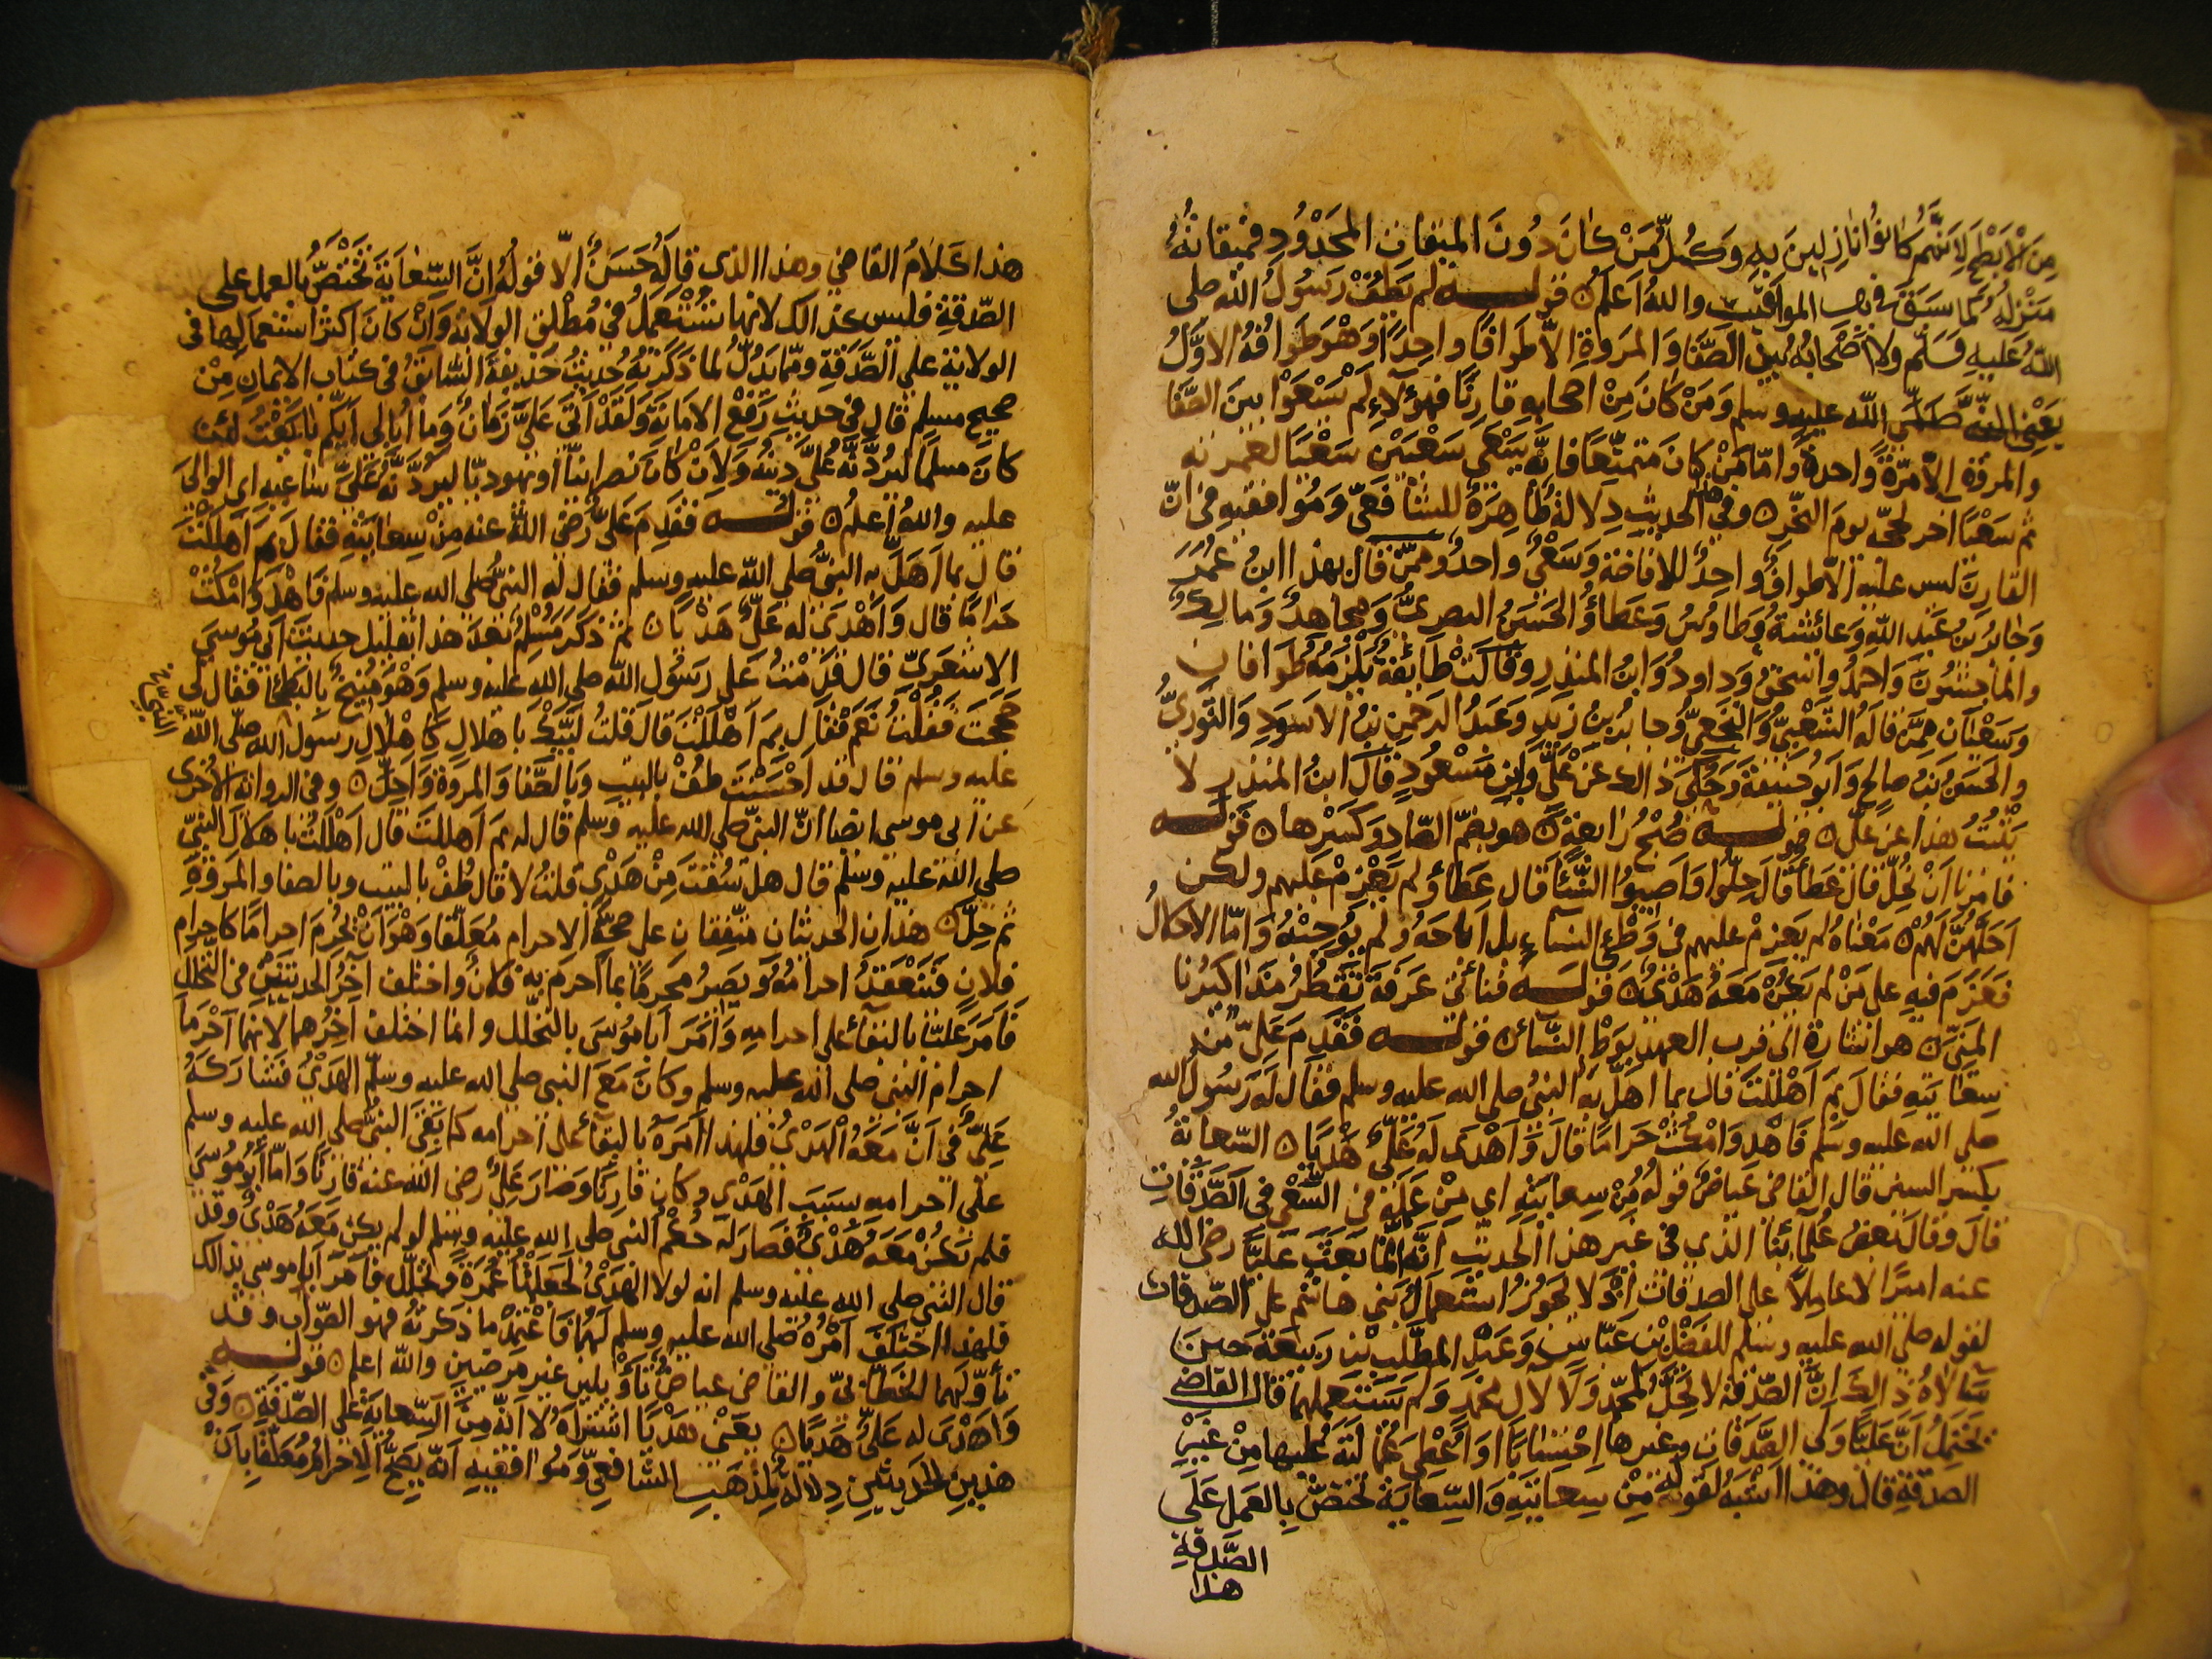 مِنَ الْأَبْطَحِ لِأَنَّهُمْ كَانُوا نَازِلِينَ بِهِ وَكُلُّ مَنْ كَانَ دُونَ الميقَاتِ المَحْدُودِ فميقاتُهُ
مَنْزِلُهُ كما سَبَقَ في باب المواقيت والله أعلم قولـــه لم يَطُفْ رَسُولُ الله صلى
الله عَلَيهِ وَسَلَّم ولا أَصْحَابُهُ بَينَ الصَّفَا وَالمَروَةِ إلا طَوَافًا واحِدًا وَهْوَ طَوَافُهُ الأوَّلُ
يَعْنِي النبيَّ صَلَّى الله عليه وسلم وَمَنْ كانَ مِنْ اصحابه قارِنًا فهؤُلاءِ لَمْ يَسْعَوْا بينَ الصَّفَا
والمروَة إلّا مرّةً وَاحدةً وَأمّا مَنْ كانَ متمتّعًا فَإنَّه يَسْعَى سَعْيَيْنِ سَعْيًا لعُمرته
ثم سَعْيًا آخر لحجّه يومَ النحْر وفي هذا الحديثِ دِلالة ظَاهِرَة للشافعيّ وَمُوافقيه في انّ
القارِنَ ليس عليه إلّا طوافٌ وَاحِدٌ للإفاضة وَسَعْيٌ واحدٌ وممّن قَالَ بهذا ابنُ عُمَرَ
وَجابرُ بنُ عَبْد اللهِ وَعائشة وَطاوُسٌ وَعَطاءٌ وَالحَسَنُ البصريّ وَمجاهدٌ وَمالكٌ
والماجِشُونَ وَاحمدُ وَاسحقُ وَداودُ وَابنُ المنذِرِ وَقالَتْ طَائِفَةٌ يَلْزمُهُ طَوَافان
وَسَعْيَان مِمَّن قالَهُ الشَّعْبِيُّ وَالنَّخَعِيُّ وَجابرُ بنُ زَيدٍ وَعَبدُ الرحمن بنُ الأسود وَالثَّوريُّ
والحَسَنُ بنُ صالِحٍ وَأبو حنيفةَ وَحُكيَ ذالك عَنْ عَلِيٍّ وَابنِ مَسْعُودٍ قَالَ ابنُ المنذر لا
يَثْبُتُ هذا عن عليّ قولـــه صُبْحَ رَابعةٍ هو بضمّ الصّاد وَكسْرها قولـــه
فامرنا أنْ نُحِلَّ قَالَ عَطَاءٌ قَالَ حِلُّوا وَأصيبُوا النِّسَاءَ قال عَطَاءٌ وَلم يَعْزِمْ عَلَيهم ولكن
أَحَلَّهُنَّ لَهُمْ مَعْنَاهُ لم يَعزِمْ عليهم في وَطْءِ النساء بل أباحَهُ وَلم يُوجِبْهُ وَامّا الاحلالُ
فَعَزَمَ فيهِ على مَنْ لم يكنْ مَعَهُ هَدْيٌ قولـــه فنأتي عَرَفَةَ تَقْطُرُ مَذَاكيرُنا
المَنِيَّ هو إشارة الى قرب العهد بِوَطْءِ النِّساء قولـــه فقَدِمَ عَليٌّ مِنْ
سِعَايَتِهِ فقالَ بِمَ أَهْلَلْتَ قال بما أهلّ به النبيُّ صلى الله عليه وسلم فَقالَ لَهُ رَسُولُ الله
صلى الله عليه وسلم فَأهْدِ وَامْكُثْ حَرَامًا قَالَ وَأهْدَى لَهُ عَلِيٌّ هَدْيًا السّعايةُ
بكسر السين قال القاضي عياضٌ قوله مِنْ سِعايَتِهِ اي مِنْ عَمَلِهِ في السَّعْي في الصَّدَقَاتِ
قَالَ وَقَالَ بَعْضُ عُلمائنا الذي في غير هذا الحديث أنَّهُ إنّما بَعَثَ عَليًّا رضي الله
عنه أميرًا لا عامِلاً على الصدقات إذْ لا يجوزُ استعمالُ بَني هاشم على الصّدقات
لقوله صلى الله عليه وسلم للفضل بن عَبّاس وَعَبْدِ المطَّلِبِ بْنِ رَبِيعَةَ حِينَ
سألاهُ ذالك إنَّ الصّدقة لا تَحِلُّ لمحمّدٍ وَلا لآل محمدٍ وَلم يستعملهما قال القاضي
يَحْتَمِلُ أنَّ عَليًّا وَليَ الصَّدَقَاتِ وغيرها احْتِسَابًا أوَ أُعْطِيَ عُمالَتَهُ عَليها مِنْ غيْرِ
الصدقة قال وهذا أَشْبَهُ لقوله مِنْ سِعايَتِهِ وَالسِّعاية تَخْتَصُّ بِالعَمَلِ عَلَى
الصَّدقةِ
هذا
هذا كلامُ القاضي وهذا الذي قالَهُ حَسَنٌ إلّا قولَهُ إنَّ السِّعَايَةَ تَخْتَصُّ بالعمل على
الصَّدقةِ فليس كذالك لانها تُسْتَعْمَلُ في مُطْلَق الولاية وَإنْ كانَ أكثرُ استعمالها في
الولاية على الصَّدَقةِ وممّا يَدُلُّ لما ذَكَرْتُهُ حديثُ حُذيفةَ السَّابقُ في كتاب الإيمانِ مِنْ
صحيح مسلم قال في حديثِ رَفْعِ الأمانةِ وَلَقَدْ أَتَى عَلَيَّ زمَانٌ وَما أُبالي أيَّكم بايَعْتُ لئن
كانَ مسلمًا ليَرُدَّنَّه عَلَيَّ دِينُهُ وَلَإنْ كانَ نصرانيًّا أو يهوديًّا ليَرُدَّنَّهُ عَلَيَّ ساعيهِ اي الوالي
عليه والله أعلم قولـــه فقَدِمَ عَليٌّ رَضي الله عنه مِنْ سِعايَتِهِ فقالَ بِمَ أَهلَلْتَ
قال بما أَهَلَّ بهِ النبيُّ صلى الله عليه وسلم فقال له النبيُّ صلى الله عليه وسلم فَأهْدِ وَامْكُثْ
حَرَامًا قال وَأَهْدَى له عَليٌّ هَدْيًا ثم ذَكَرَ مُسْلِمٌ بَعْدَ هذا بقليل حديثَ أبي مُوسَى
الاشعريّ قال قَدِمْتُ عَلى رَسُول الله صلى الله عليه وسلم وَهْوَ مُنِيخٌ بالبَطْحاءِ فقال لي
حَجَجْتَ فَقُلْتُ نَعَمْ فَقَال بِمَ أَهْلَلْتَ قالَ قلتُ لَبَّيْكَ باهلالٍ كَإهْلالِ رسول الله صلى الله
عليه وسلم قال قد أَحْسَنْتَ طُفْ بالبيتِ وَبالصَّفا وَالمروة وَأَحِلَّ وفي الرواية الأخرى
عن أبي موسى أيضا انّ النبيّ صلى الله عليه وسلم قال له بِمَ أَهللتَ قال أَهْلَلْتُ باهلال النبيّ
صلى الله عليه وسلم قال هل سُقْتَ مِنْ هَدْيٍ قلتُ لا قال طُفْ بالبيت وبالصفا والمَروَةِ
ثم حِلَّ هذان الحديثان متّفقان على صحّة الاحرام مُعَلَّقًا وَهْوَ أنْ يُحْرِمَ احرامًا كاحرام
فلانٍ فَيَنْعَقِدُ احرامُهُ وَيصيرُ محرِمًا بما أحرمَ به فلانٌ واختلف آخِرُ الحديثين في التحلل
فَأمَرَ عَليًّا بالبَقاءِ على احرامِهِ وَأَمَرَ أبا مُوسَى بالتحلل وانما اختلف آخِرُهما لانهما أَحْرَمَا
احرامَ النبي صلى الله عليه وسلم وكانَ مَعَ النبي صلى الله عليه وسلّم الهَدْيُ فَشَارَكَهُ
عَلِيٌّ في أنَّ مَعَهُ الهَدْيَ فلهذا أَمَرَهُ بالبقاء على احرامه كما بَقيَ النبيُّ صلى الله عليه وسلم
على احرامه بسَبَبِ الهَدْيِ وكان قَارِنًا وَصَارَ عليٌّ رضي الله عنه قارنًا وَامّا أبُو مُوسَى
فلم يَكُنْ مَعَهُ هَدْيٌ فَصَارَ لَهُ حُكْمُ النبي صلى الله عليه وسلم لو لم يكن مَعَهُ هَدْيٌ وَقَدْ
قال النبي صلى الله عليه وسلم انه لولا الهَدْيُ لَجَعَلَهَا عُمرَةً وتَحلّل فَأَمَرَ أبَا موسى بذالك
فلهذا اخْتَلَفَ أَمْرُهُ صلى الله عليه وسلم لَهُمَا فَاعْتَمِدْ ما ذَكَرْتُهُ فهو الصَّوابُ وقد
تأوّلهما الخَطّابيّ والقاضي عياضٌ تَأوِيلين غير مرضيّين والله اعلم قولـــه
وَأهْدَى له عَليٌّ هَدْيًا يَعْني هَدْيًا اشتراهُ لا أنَّهُ مِنَ السِّعايَةِ عَلى الصَّدَقَةِ وَفي
هذين الحَديثَيْنِ دِلالةٌ لمذهَبِ الشافعيِّ وَمُوافقيه أنّه يَصِحُّ الاحرامُ مُعَلَّقًا بِأنْ